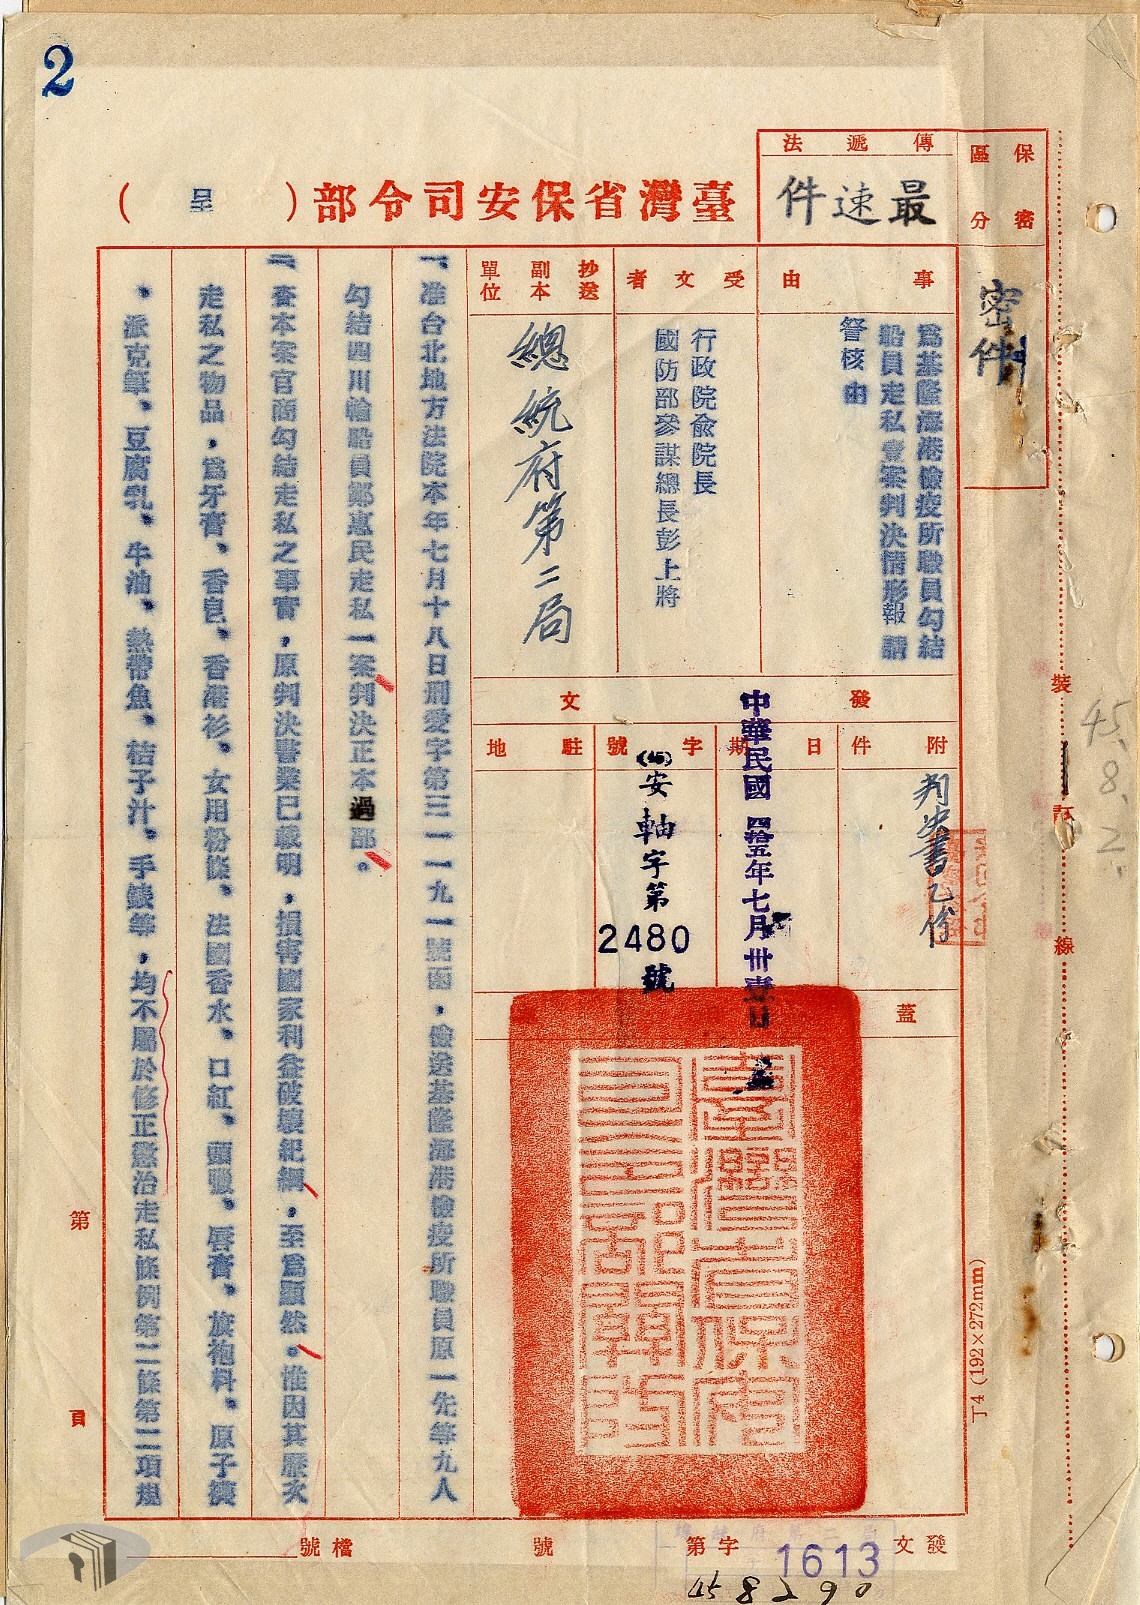 2
保密
區分
密件
傳遞法
最速件
臺灣省保安司令部(呈)
事由
為基隆海港檢疫所職員勾結
船員走私壹案判決情形報請
詧核由
受文者
行政院俞院長
國防部參謀總長彭上將
抄送
副本
單位
總統府第二局
發文
附件
判決書乙份
日期
中華民國四拾五年七月卅壹日
字號
(45)安軸字第
2480
號
駐地
蓋
一、准台北地方法院本年七月十八日刑愛字第三一一九一號函，檢送基隆海港檢疫所職員原一先等九人
勾結四川輪船員鄭惠民走私一案判決正本過部。
二、查本案官商勾結走私之事實，原判決書業已載明，損害國家利益破壞紀綱，至為顯然。惟因其歷次
走私之物品，為牙膏、香皂、香港衫、女用粉條、法國香水、口紅、頭髮、唇膏、旗袍料、原子襪
、派克筆、豆腐乳、牛油、熱帶魚、桔子汁、手錶等，均不屬於修正懲治走私條例第二條第二項規
第 頁
裝
訂
線
45.8.2.
丁4(192×272mm)
發文
字第
1613
號
檔號
458290